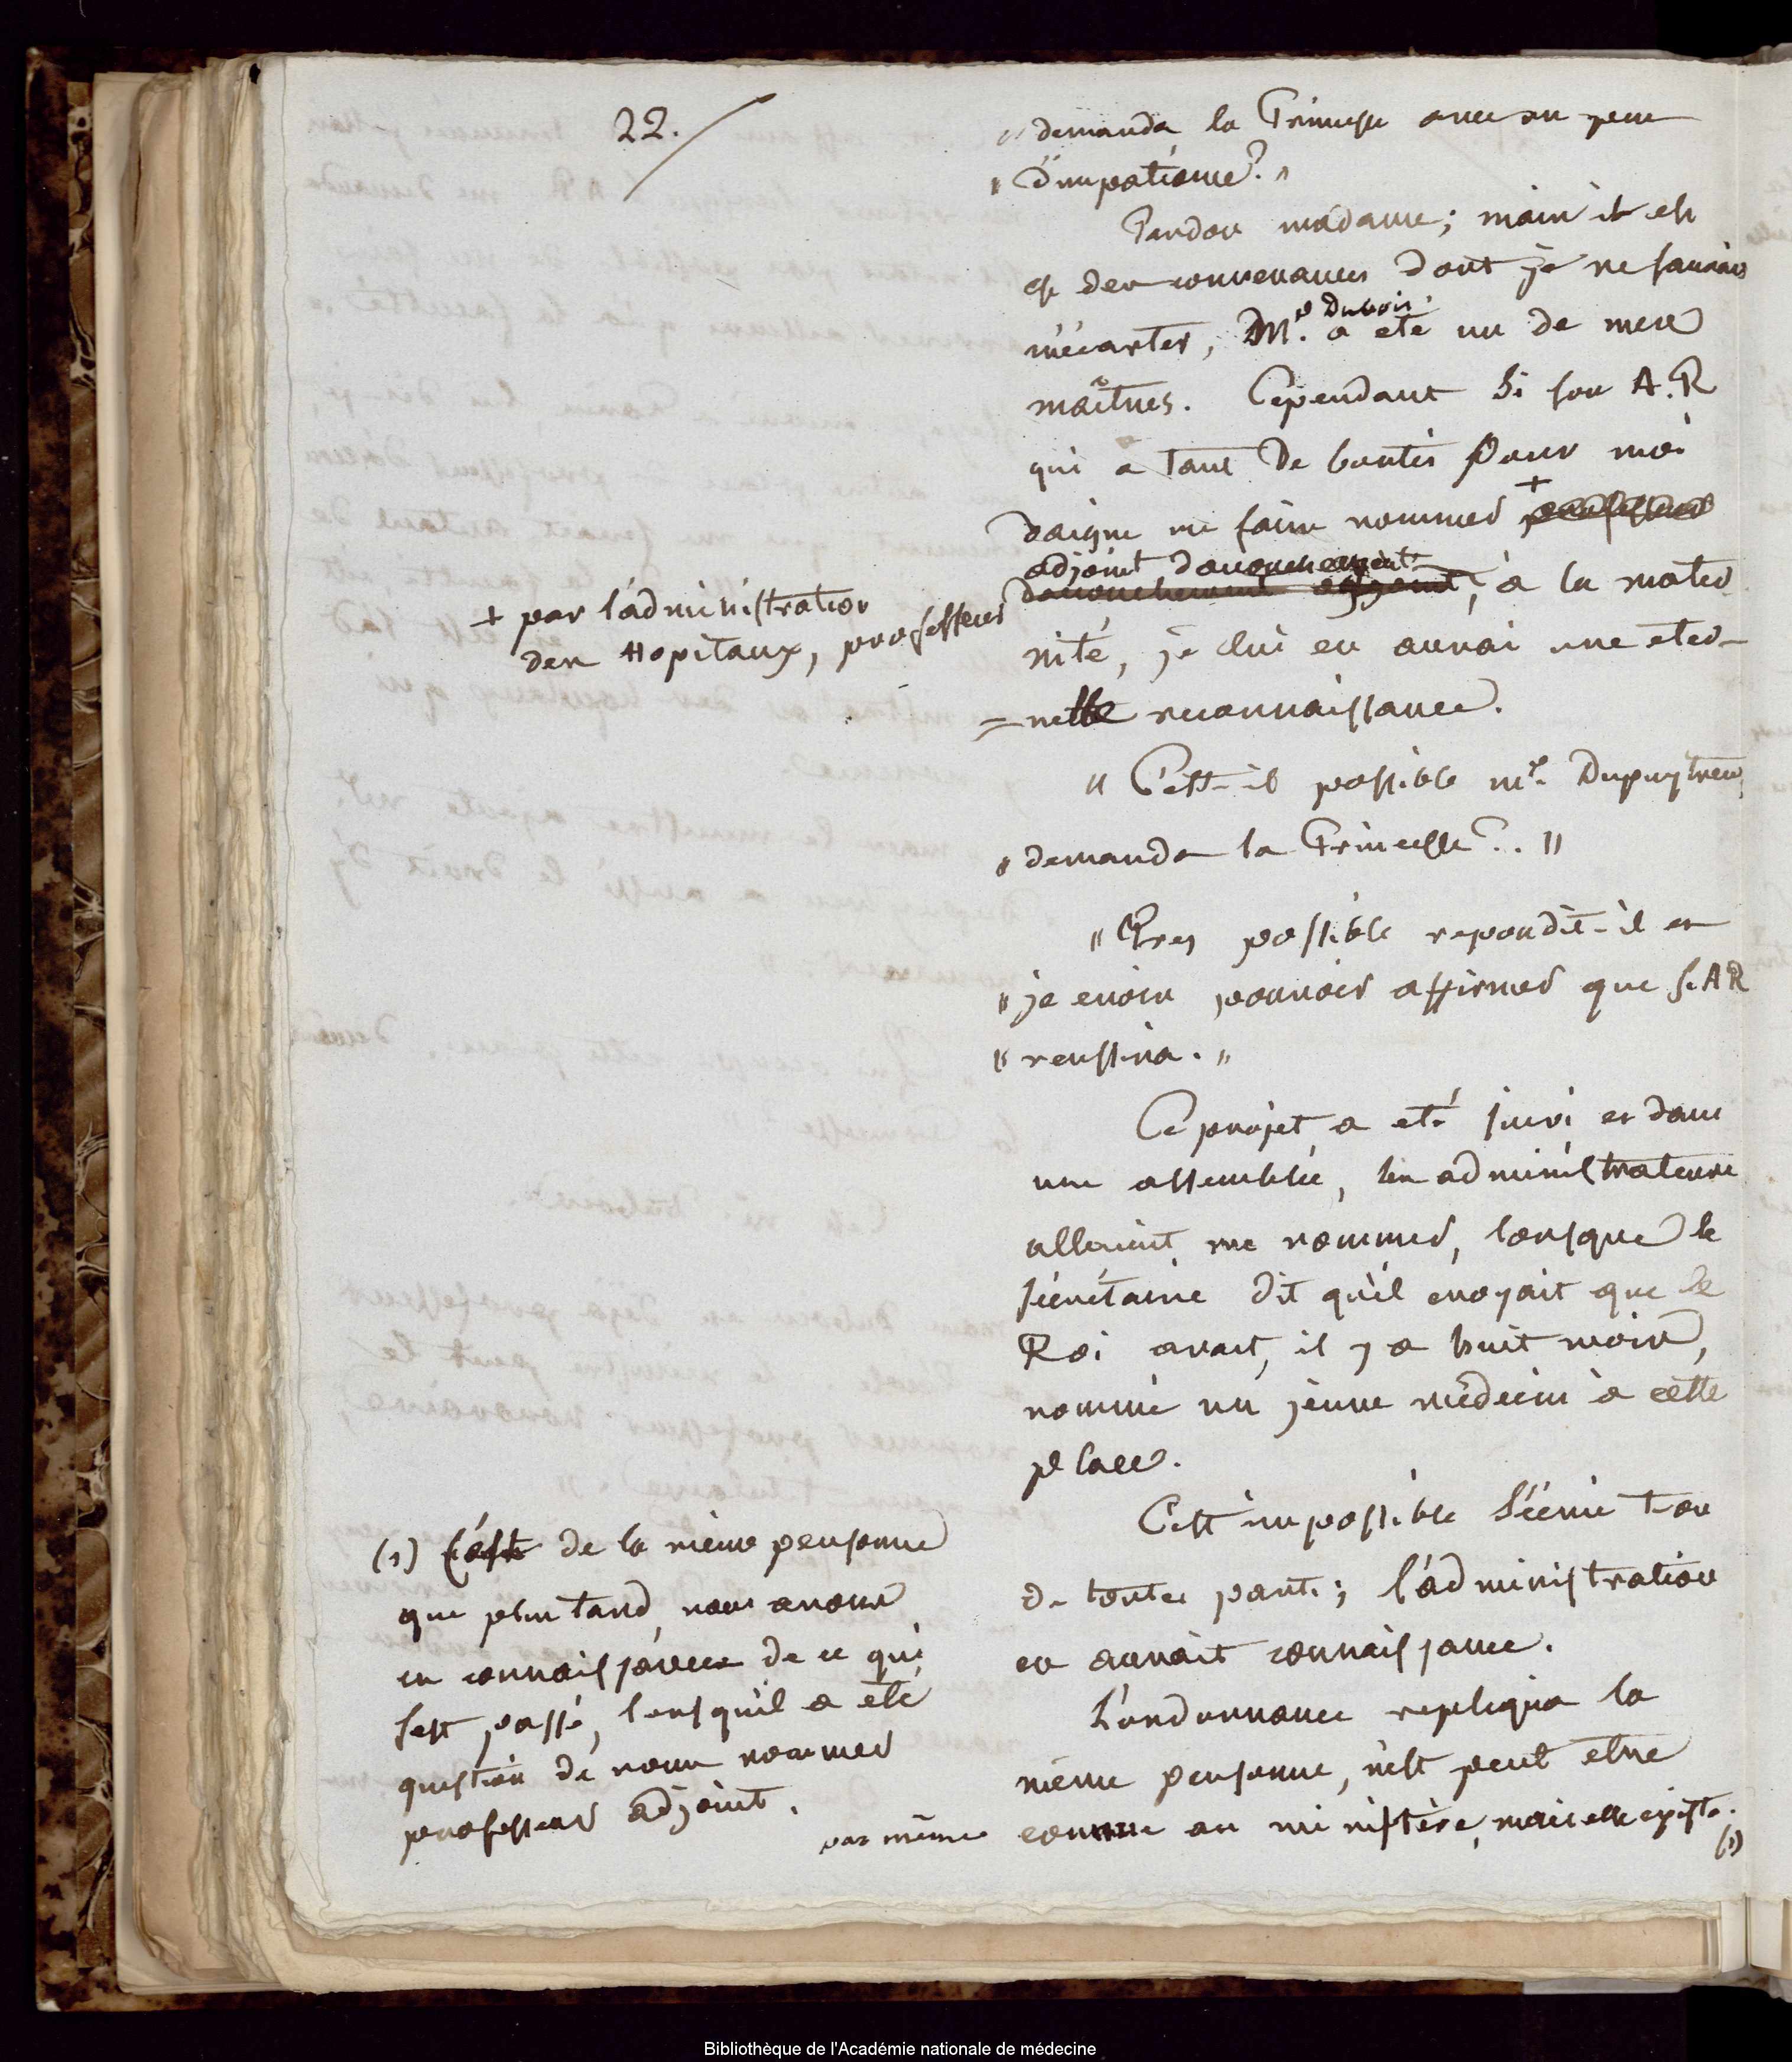 22.
" demanda la Princesse avec un peu
" d'impatience? "
Pardon madame; mais il est
est des convenances dont je ne saurais
m'écarter, Mr. Dubois a eté un de mes
maîtres. Cependant si son A.R
qui a tant de bontés pour moi
daigne me faire nommer + professeur
adjoint d'accouchement
d'accouchement adjoint, à la mater
nité, je lui en aurai une eter-
= nelle reconnaissance.
+ par l'administration
des Hopitaux, professeur
" C'est-il possible mr. Dupuytren,
" demanda la Princesse?.. "
" Tres possible repondit-il et
" je crois pouvoir affirmer que S.AR
" reussira. "
Ce projet a eté suivi et dans
une assemblée, les administrateurs
allaient me nommer, lorsque le
sécrétaire dit qu'il croyait que le
Roi avait, il y a huit mois,
nommé un jeune médecin à cette
place.
C'est impossible s'écrie t-on
de toutes parts; l'administration
en aurait connaissance.
L'ordonnance repliqua la
même personne, n'est peut etre
pas même connue au ministère, mais elle existe.
(1)
(1) C'est de la même personne
que plus tard, nous avons
eu connaissance de ce qui
s'est passé, lorsqu'il a eté
question de nous nommer
professeur adjoint.
Bibliothèque de l'Académie nationale de médecine